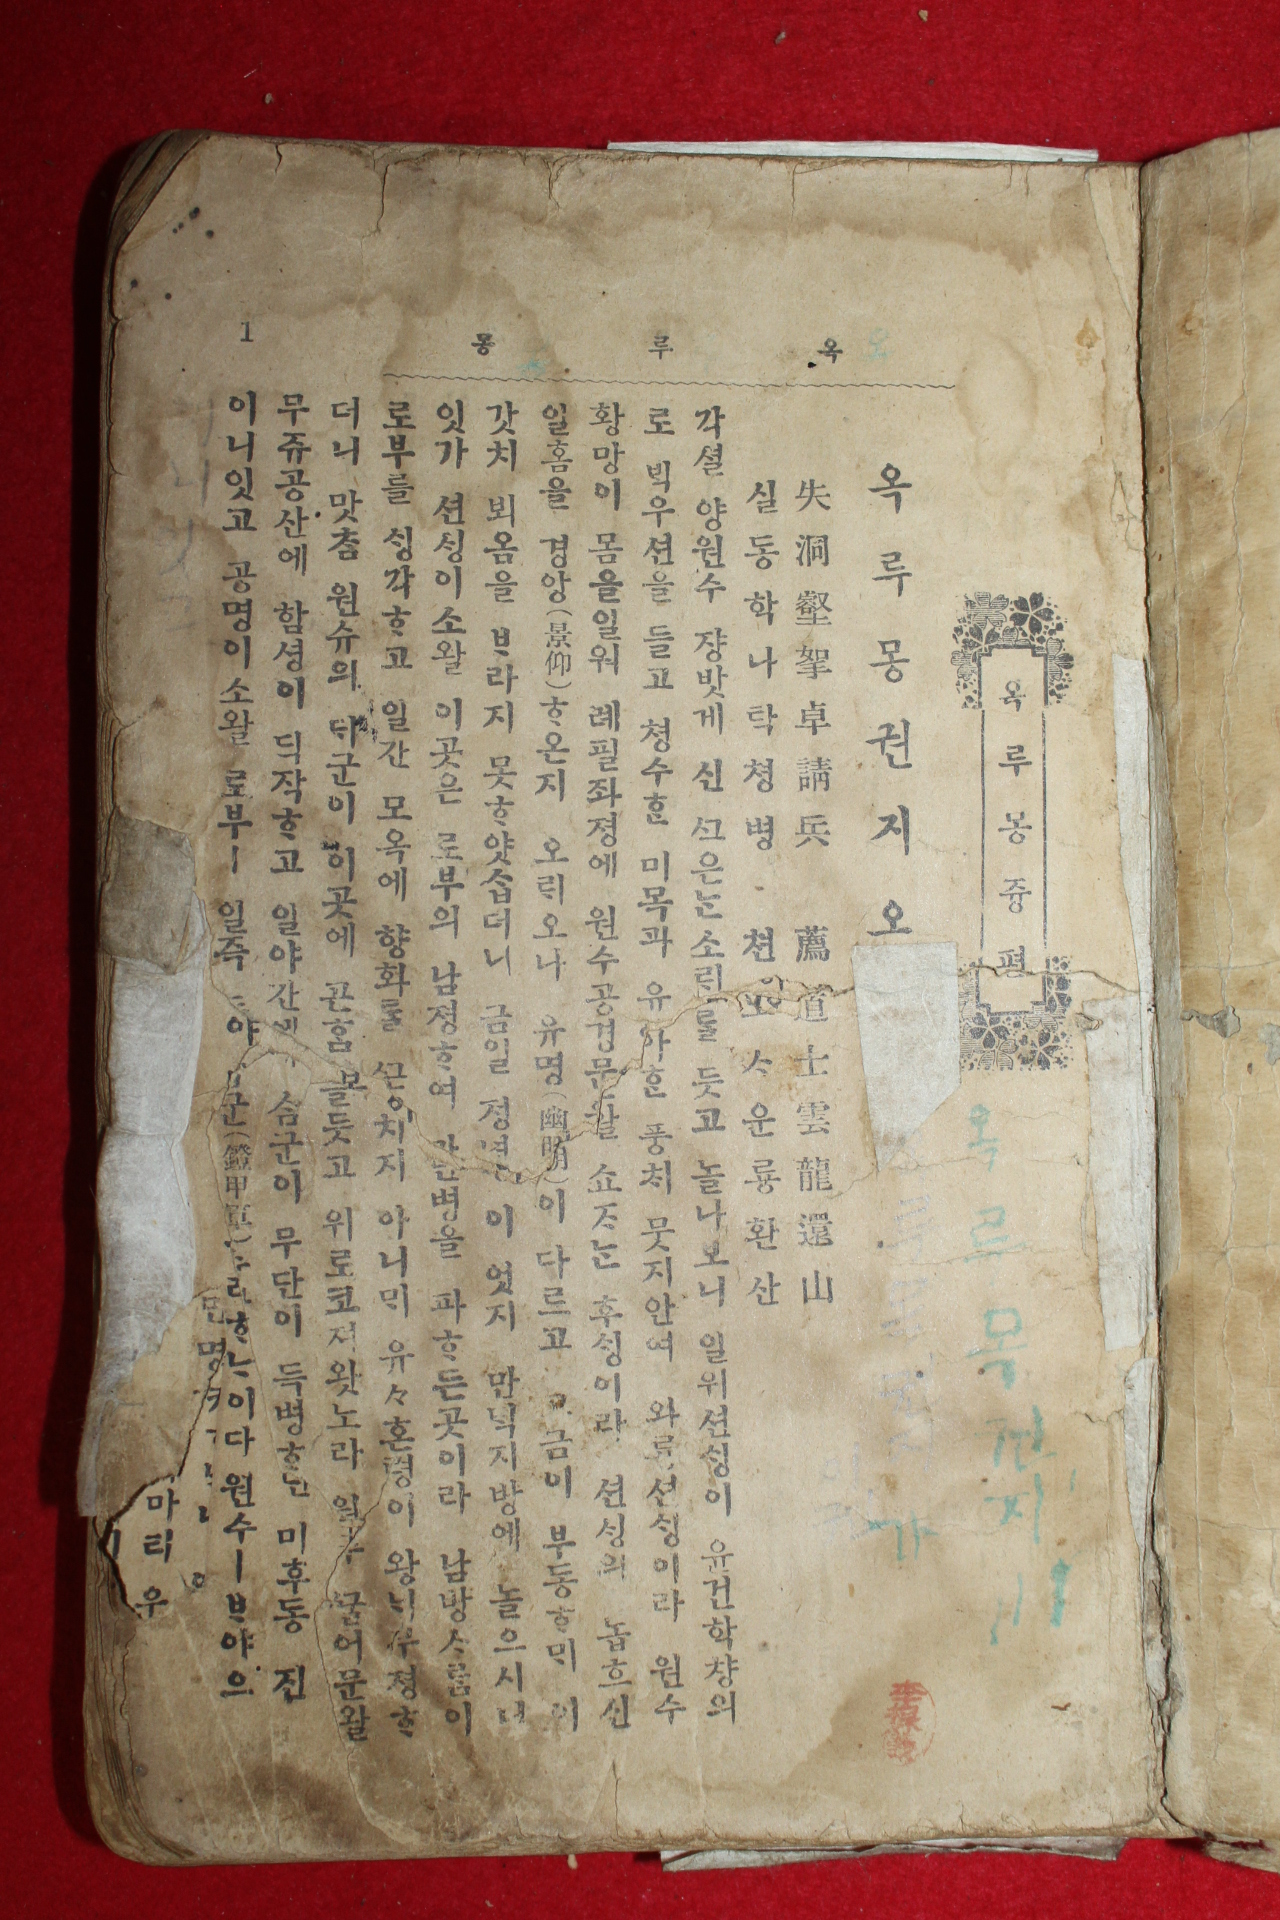 옥루몽
1
옥루몽즁편
옥루몽권지오
失洞壑拏卓請兵 薦道士雲龍還山
실동학나탁쳥병 쳔도ᄉ운룡환산
각셜 양원수 쟝밧게 신 ᄭᅳ은ᄂᆞᆫ소ᄅᆡ를 듯고 놀나보니 일위션ᄉᆡᆼ이 윤건학챵의
로 ᄇᆡᆨ우션을 들고 쳥수ᄒᆞᆫ 미목과 유아ᄒᆞᆫ 풍치 뭇지안여 와룡션ᄉᆡᆼ이라 원수
황망이 몸을일워 례필좌졍에 원수공경문왈 쇼ᄌᆞᄂᆞᆫ 후ᄉᆡᆼ이라 션ᄉᆡᆼ의 놉흐신
일홈을 경앙(景仰)ᄒᆞ온지 오ᄅᆡ오나 유명(幽明)이 다르고 고금이 부동ᄒᆞᄆᆡ 이
갓치 뵈옴을 ᄇᆞ라지 못ᄒᆞ얏습더니 금일 졍녕 이 엇지 만ᄆᆡᆨ지방에 놀으시니
잇가 션ᄉᆡᆼ이소왈 이곳은 로부의 남졍ᄒᆞ여 만병을 파ᄒᆞ든곳이라 남방ᄉᆞ람이
로부를 ᄉᆡᆼ각ᄒᆞ고 일간 모옥에 향화를 ᄭᅳᆫ치지 아니ᄆᆡ 유々혼령이 왕ᄂᆡ무졍ᄒᆞ
더니 맛참 원슈의 ᄃᆡ군이 이곳에 곤홈 을듯고 위로코져왓노라 원수 ᄭᅮᆯ어문왈
무쥬공산에 함셩이 ᄃᆡ작ᄒᆞ고 일야간에 삼군이 무단이 득병ᄒᆞᆫ 미후동 진
이니잇고 공명이소왈 로부ㅣ 일즉 군(鐙甲軍) ᄒᆞᆫ이다 원수ㅣᄇᆞ야으
마리우
옥루목권지